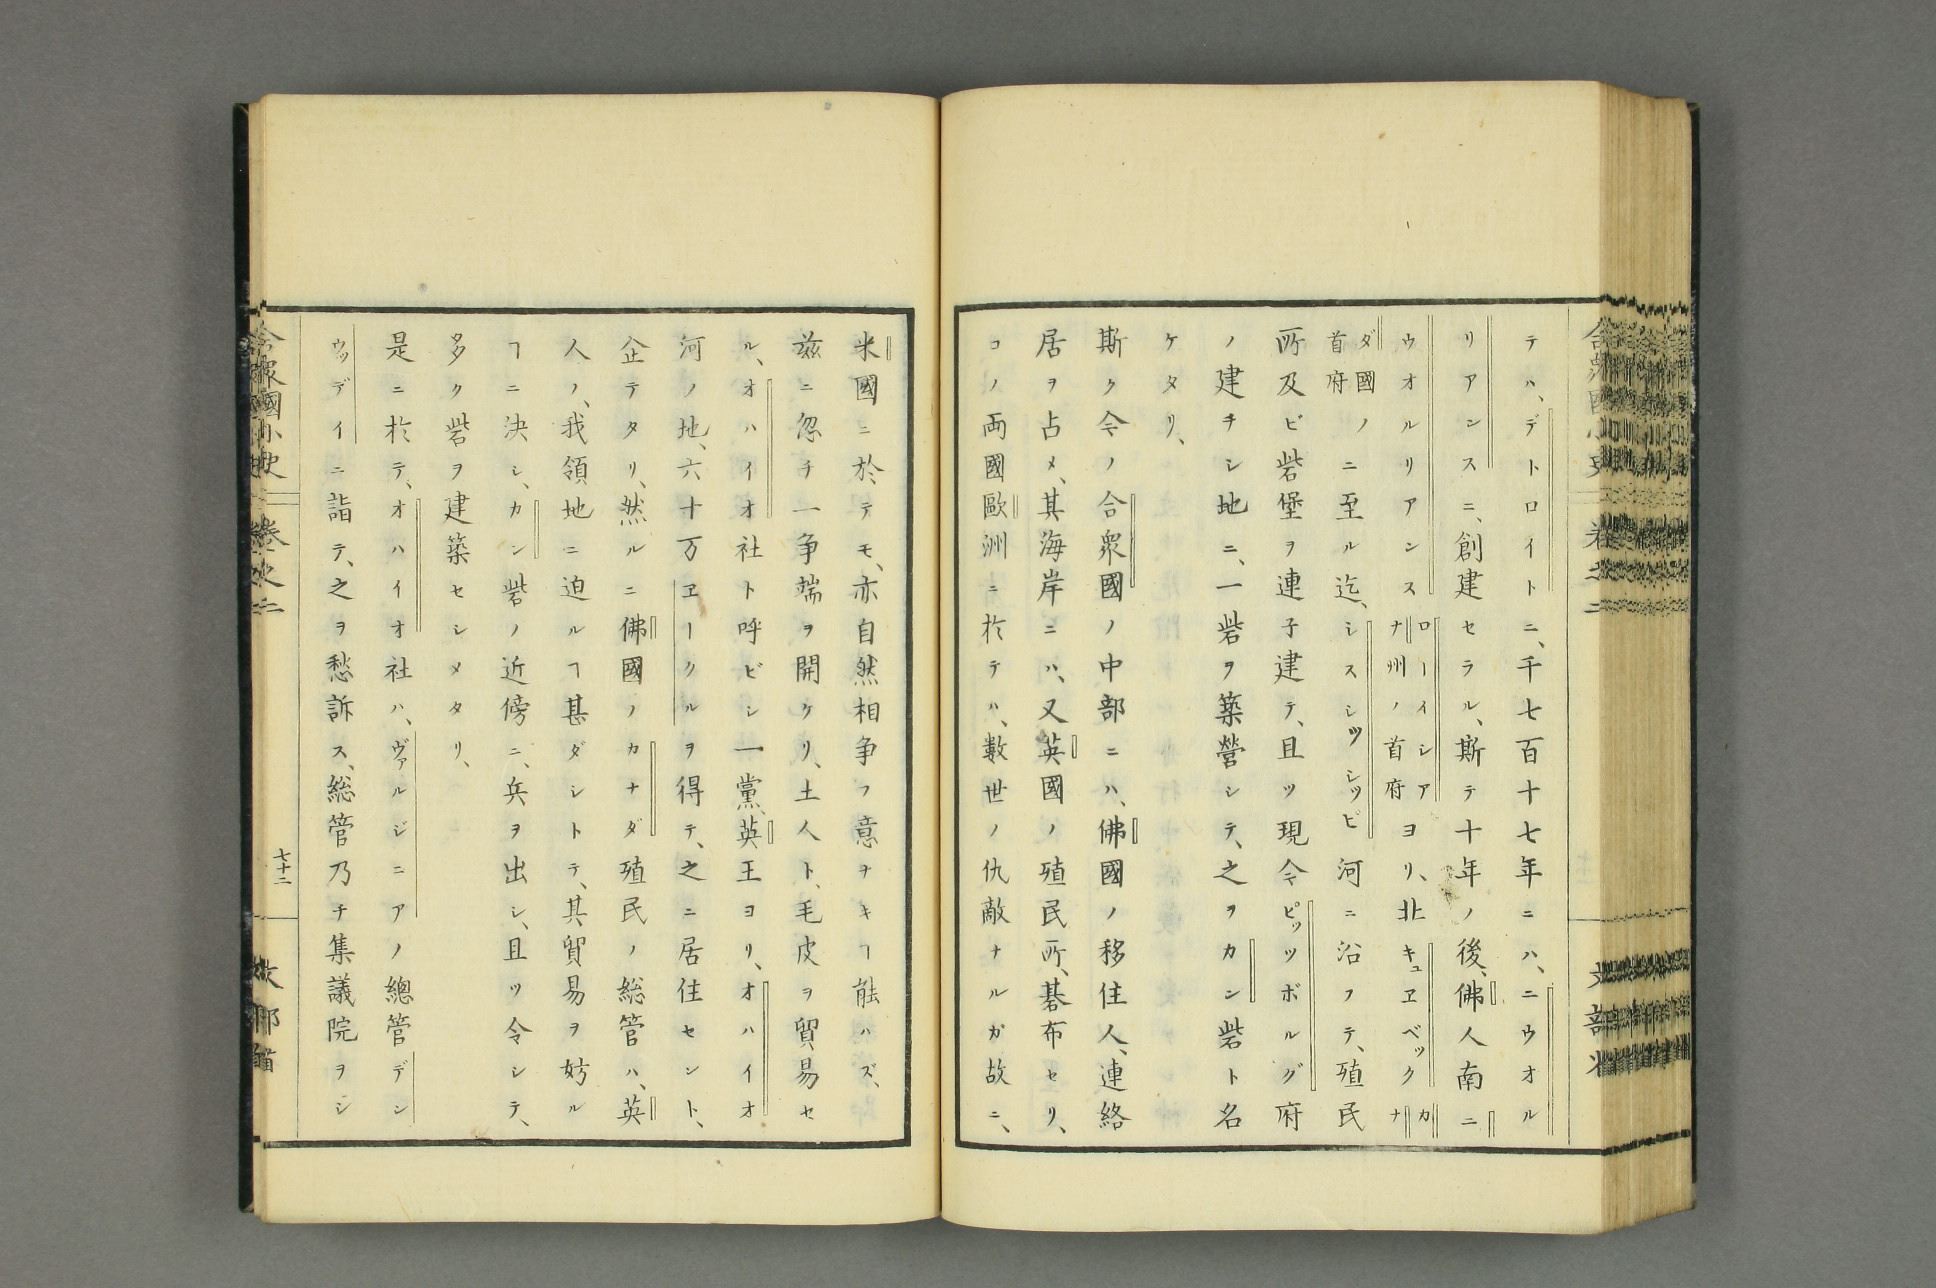 テハ、デトロイトニ、千七百十七年ニハ、ニウオル
リアンスニ、創建セラル、斯テ十年ノ後、佛人南ニ
ウオルリアンス ローイシアナ州ノ首府 ヨリ、北キュヱベック カナ
ダ國ノ首府 ニ至ル迄、シスシッツシッピ河ニ沿フテ、殖民
所及ビ砦堡ヲ連子建テ、且ツ現今ピッツボルグ府
ノ建チシ地ニ、一砦ヲ築營シテ、之ヲカン砦ト名
ケタリ、
斯ク今ノ合衆國ノ中部ニハ、佛國ノ移住人、連絡
居ヲ占メ、其海岸ニハ、又英國ノ殖民所、碁布セリ、
コノ両國歐洲ニ於テハ、數世ノ仇敵ナルガ故ニ、
米國ニ於テモ、亦自然相争フ意ヲキヿ能ハズ、
茲ニ忽チ一争端ヲ開ケリ、土人ト、毛皮ヲ貿易セ
ル、オハイオ社ト呼ビシ一黨、英王ヨリ、オハイオ
河ノ地、六十万ヱークルヲ得テ、之ニ居住セント、
企テタリ、然ルニ佛國ノカナダ殖民ノ総管ハ、英
人ノ、我領地ニ迫ルヿ甚ダシトテ、其貿易ヲ妨ル
ヿニ決シ、カン砦ノ近傍ニ、兵ヲ出シ、且ツ令シテ、
多ク砦ヲ建築セシメタリ、
是ニ於テ、オハイオ社ハ、ヴァルジニアノ總管デン
ウッデイニ詣テ、之ヲ愁訴ス、総管乃チ集議院ヲシ
合衆國小史 卷之二
七十二
文部省